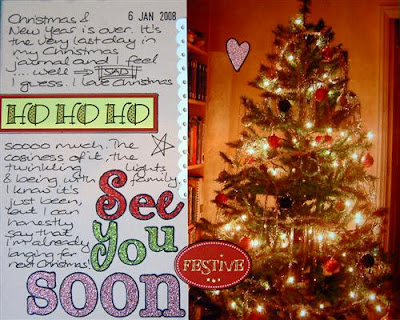 6 JAN 2008
Christmas &
New Year is over. It's
the very last day in
my Christmas
journal and I feel
....well ⇒ SAD
I guess. I love Christmas
HO HO HO
soooo much. The
cosiness of it, the
twinkling lights
& being with family,
I know it's
just been,
but I can
honestly
say that
I'm already
longing for
next Christmas!
See
you
soon
FESTIVE